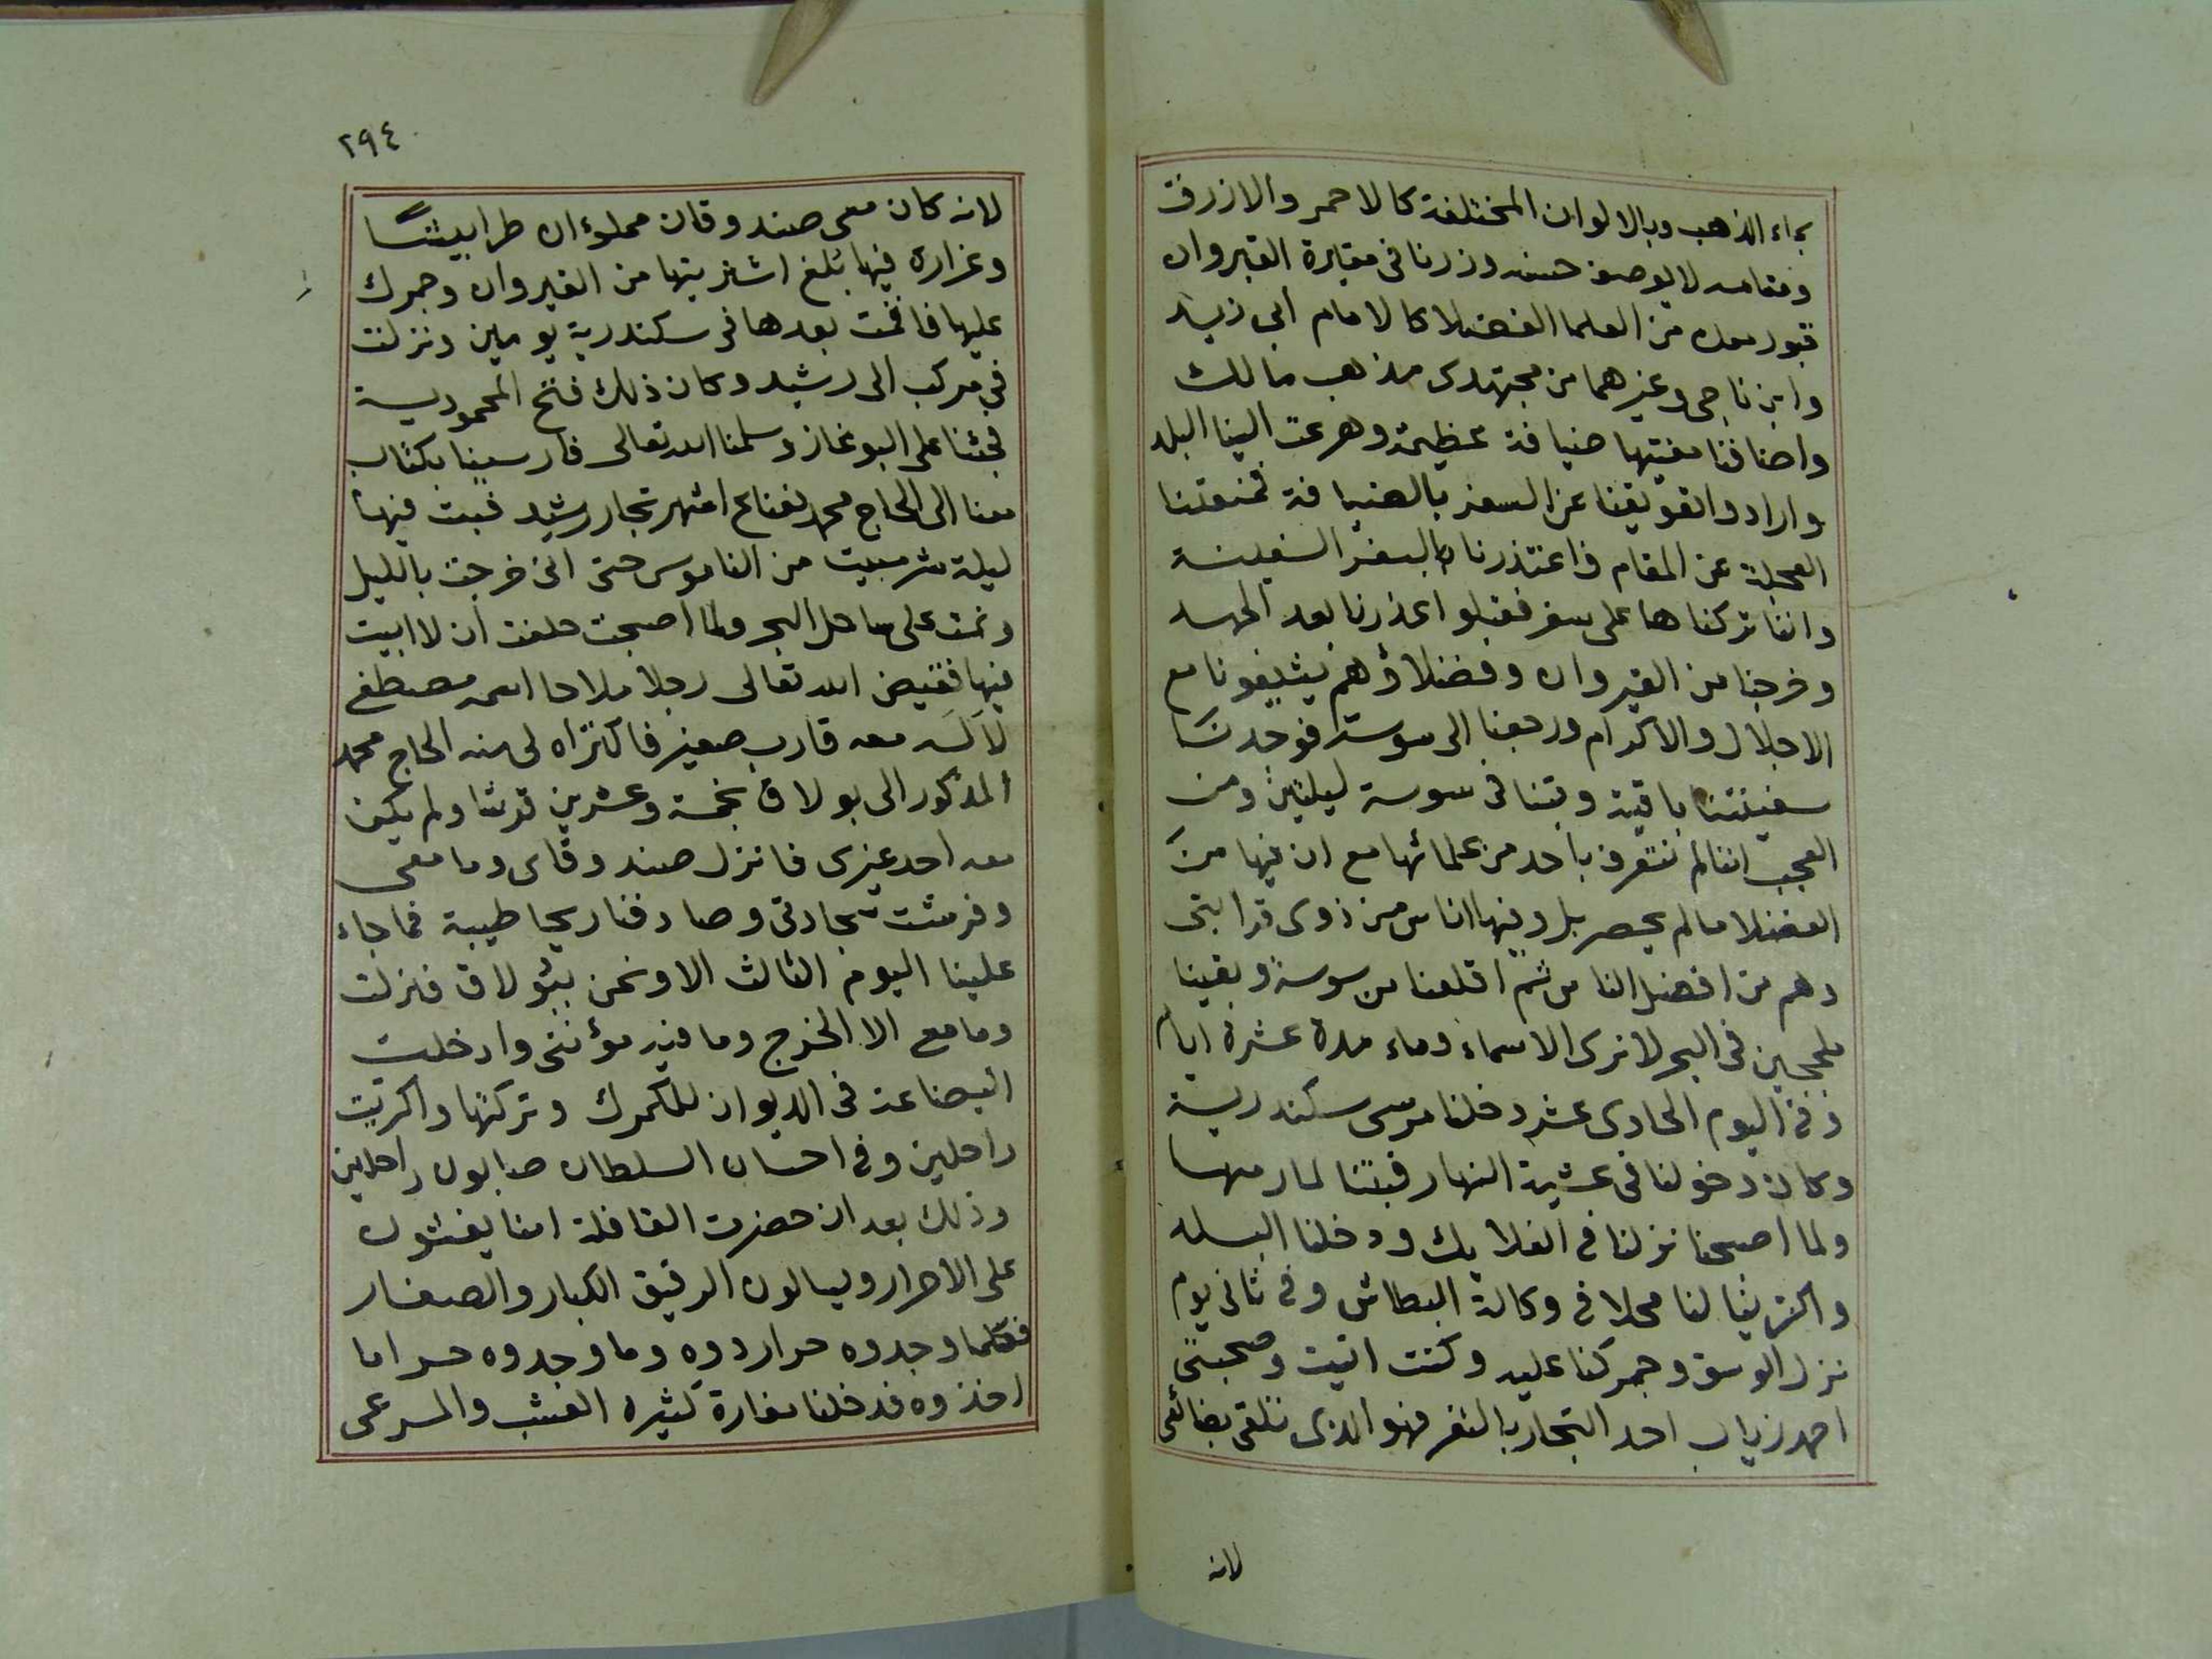 بماء الذهب وبالالوان المختلفة كالاحمر والازرق
ومقامه لا يوصف حسنه وزرنا فى مقابرة القيروان
قبور من العلما الفضلا كالامام أبى زيد
وابن ناجى وغيرهما من مجتهدى مذهب مالك
واضافنا مفتيها ضيافة عظيمة وهرعت الينا البلد
وارادوا تعويقنا عن السفر بالضيافة فمنعتنا
العجلة عن المقام فاعتذرنا بالسفر السفينة
واننا تركناها على سفر فقبلوا عذرنا بعد الجهد
وخرجنا من القيروان وفضلاؤهم يشيعونا مع
الاجلال والاكرام ورجعنا الى سوسة فوجدنا
سفينتنا باقية وبتنا فى سوسة ليلتين ومن
العجب اننا لم نتعرف باحد من علمائها مع ان فيها من
الفضلا ما لم يحصر بل وفيها اناس من ذوى قرابتى
وهم من افضل الناس ثم اقلعنا من سوسة وبقينا
ملججين فى البحر لا نرى الا سماء وماء مدة عشرة ايام
وفى اليوم الحادى عشر دخلنا مرسى سكندرية
وكان دخولنا فى عشية النهار فبتنا
ولما اصبحنا نزلنا فى الفلايك ودخلنا البلد
واكترينا لنا محلا فى وكالة البطاش وفى ثانى يوم
نزل الوسق وجمركنا عليه وكنت اتيت وصحبتى
احمد زياب احد التجار بالثغر فهو الذى تلقى بضائعى
لانه
٢٩٤
لانه كان معى صندوقان مملوءان طرابيشا
وغرارة فيها بُلغ اشتريتها من القيروان وجمرك
عليها فاقمت بعدها فى سكندرية يومين ونزلت
فى مركب الى رشيد وكان ذلك فتح المحمودية
فجئنا على البوغاز وسلمنا الله تعالى فارسينا بكتاب
معنا الى الحاج محمد اشهر تجار رشيد فبت فيها
ليلة شر مبيت من الناموس حتى انى خرجت بالليل
ونمت على ساحل البحر ولما اصبحت حلفت ان لا ابيت
فيها فقيض الله تعالى رجلا ملاحا اسمه مصطفى
معه قارب صغير فاكتراه لى منه الحاج محمد
المذكور الى بولاق بخمسة وعشرين قرشا ولم يكن
معه احد غيرى فانزل صندوقاى وما معى
وفرشت سجادتى وصادفنا ريحا طيبة فما جاء
علينا اليوم الثالث الا ونحن ببولاق فنزلت
وما مع الا الخرج وما فيه مؤنتى وادخلت
البضاعة فى الديوان للكمرك وتركتها واكريت
راحلين وفى احسان السلطان صابون راحلين
وذلك بعد ان حضرت القافلة امنا يفتشون
على الاحرار ويسالون الرقيق الكبار والصغار
فكلما وجدوه حرا ردوه وما وجدوه حراما
اخذوه فدخلنا مفازة كثيره العشب والمرعى